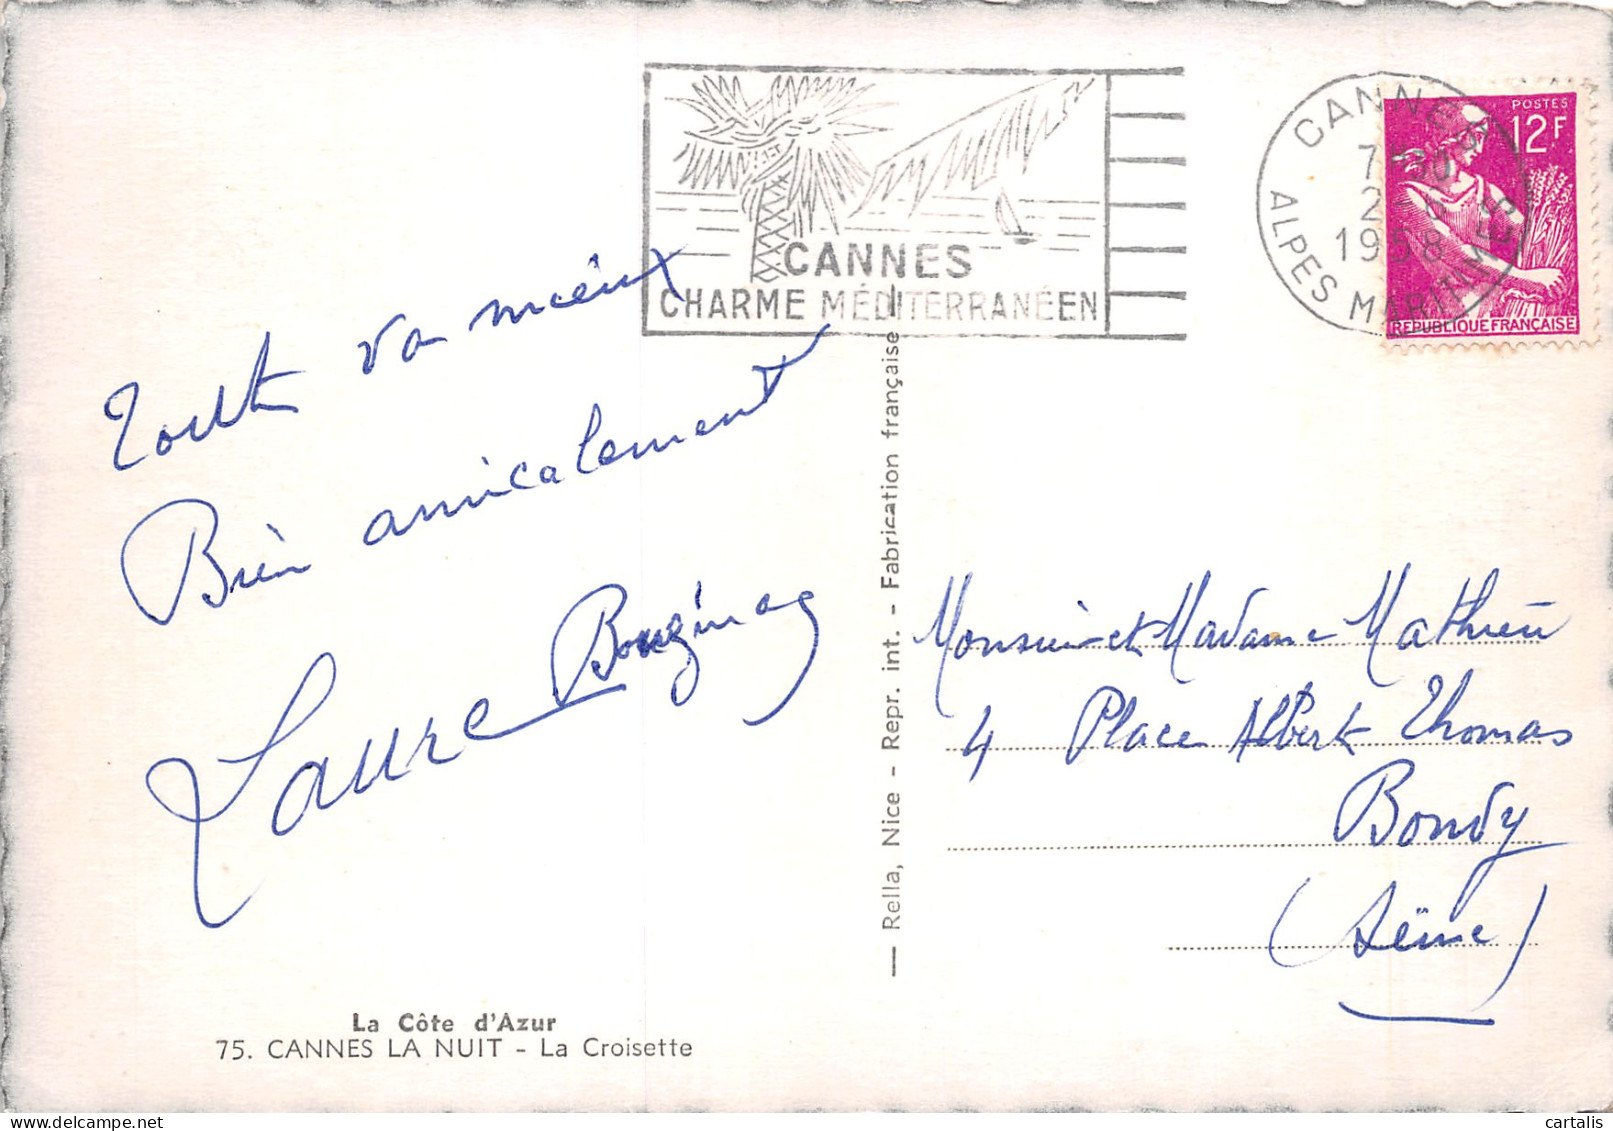 Tout va mieux
Bien amicalement
Laure
La Côte d'Azur
75. CANNES LA NUIT - La Croisette
CANNES
CHARME MÉDITERRANÉEN
Rella, Nice - Repr. int. - Fabrication française
CANNES
1958
ALPES MARITIMES
POSTES
12F
REPUBLIQUE FRANÇAISE
Monsieur et Madame Mathieu
4 Place Albert Thomas
Bondy
(Seine)
delcampe.net
cartalis